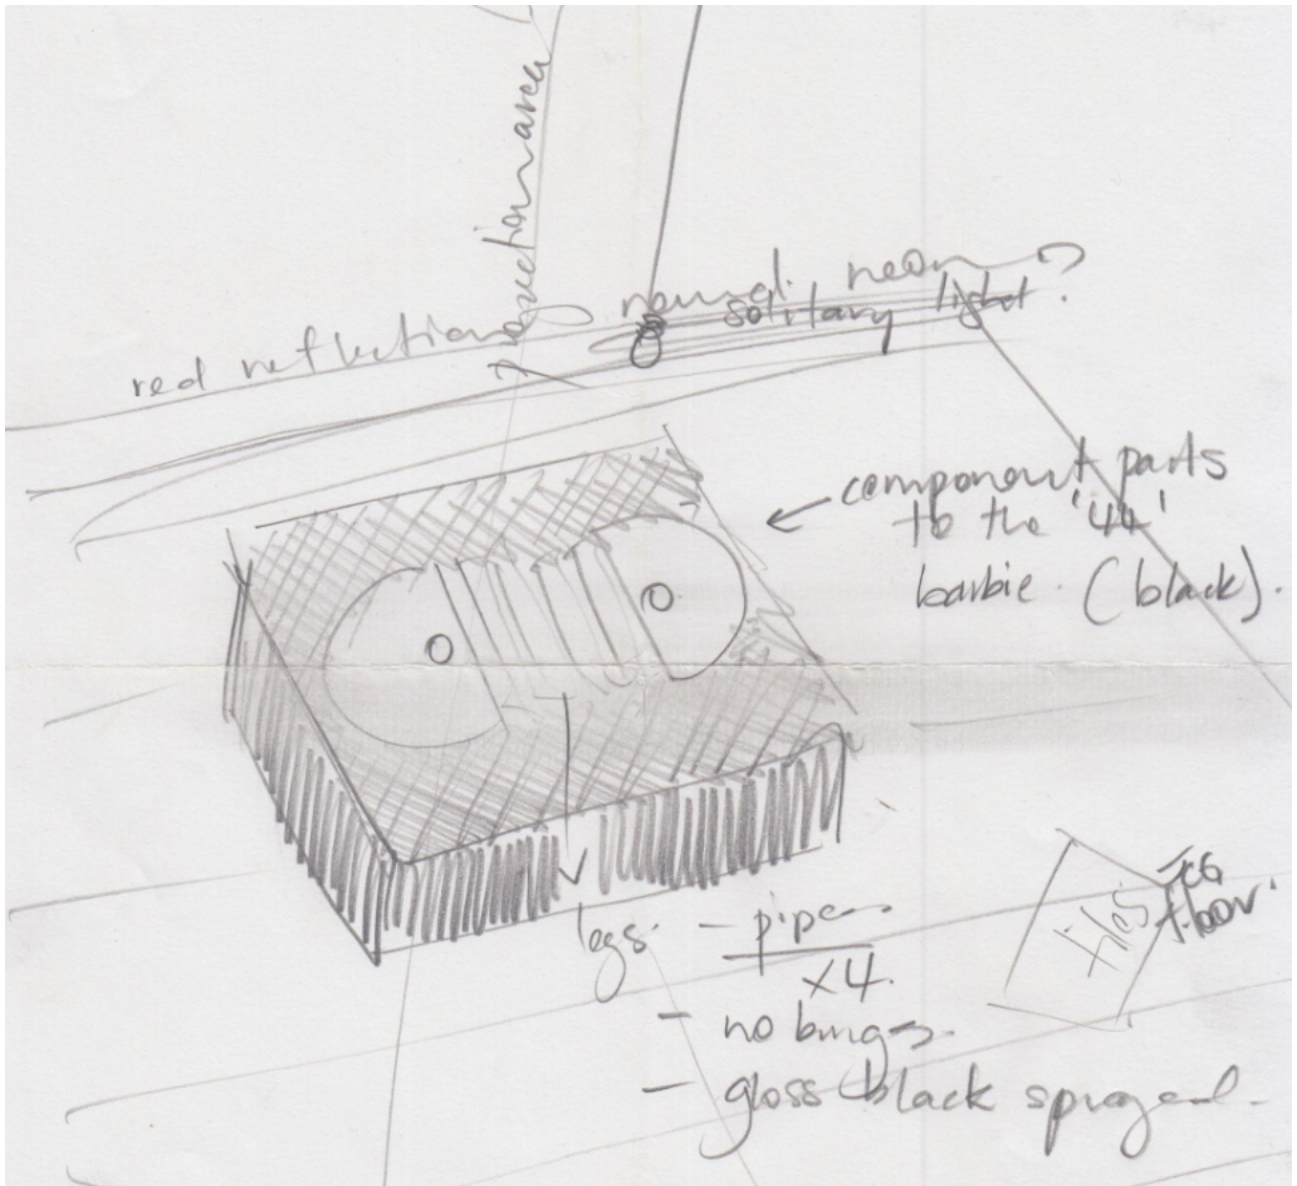 red reflection
neon
solitary light.
component parts
to the '44'
barbie. (black).
legs. - pipe
x4.
- no bungs.
- gloss black sprayed.
tiles
floor.